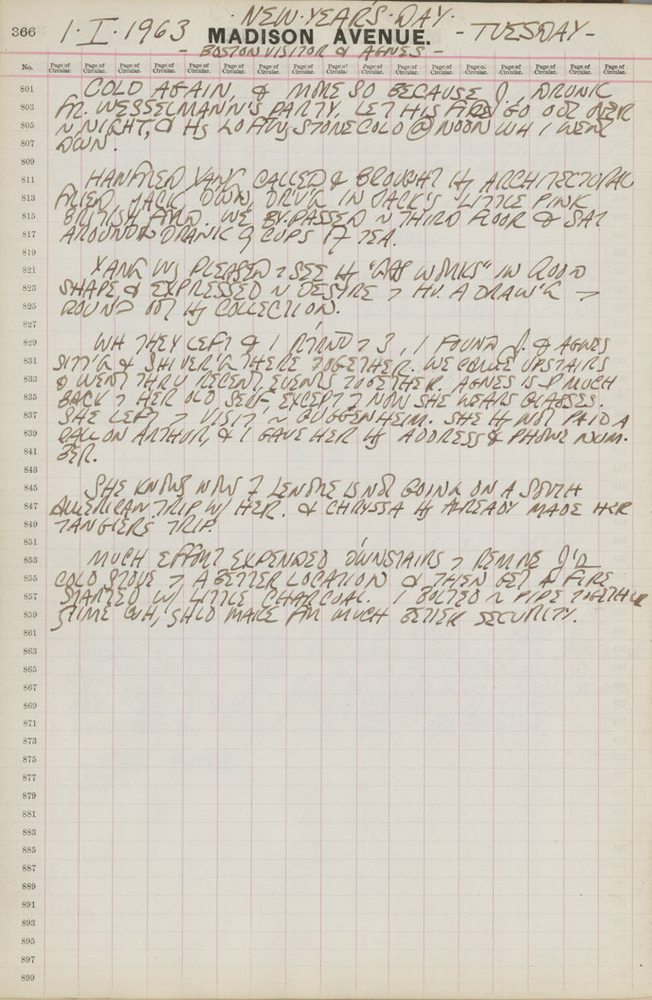 366 1·I·1963 ·NEW·YEAR'S·DAY·
MADISON AVENUE. -TUESDAY-
- BOSTON VISITOR & AGNES -
No. Page of Circular. Page of Circular. Page of Circular. Page of Circular. Page of Circular. Page of Circular. Page of Circular. Page of Circular. Page of Circular. Page of Circular. Page of Circular. Page of Circular. Page of Circular. Page of Circular. Page of Circular. Page of Circular. Page of Circular.
801 COLD AGAIN, & MORE SO BECAUSE J., DRUNK
803 FR. WESSELMANN'S PARTY, LET HIS FIRE GO OUT OVER
805 NIGHT, & STONE COLD @ NOON WH I WENT
807 DOWN.
809
811 HANFORD YANG CALLED & BROUGHT ARCHITECTURAL
813 FRIEND, JACK IN JACK'S LITTLE PINK
815 BRITISH FORD. WE BY-PASSED THIRD FLOOR & SAT
817 AROUND & DRANK CUPS TEA.
819
821 YANG WS PLEASED SEE "WORKS" IN GOOD
823 SHAPE & EXPRESSED DESIRE HV. A DRAW'G
825 ROUND OUT COLLECTION.
827
829 WH THEY LEFT & I 3, I FOUND J. & AGNES
831 SITT'G & SHIVER'G THERE TOGETHER. WE CAME UPSTAIRS
833 & WENT THRU RECENT EVENTS TOGETHER. AGNES IS MUCH
835 BACK HER OLD SELF, EXCEPT NOW SHE WEARS GLASSES.
837 SHE LEFT VISIT GUGGENHEIM. SHE NOT PAID A
839 CALL ON ARTHUR, & I GAVE HER ADDRESS & PHONE NUM-
841 BER.
843
845 SHE KNOWS NOW LENORE IS NOT GOING ON A SOUTH
847 AMERICAN TRIP W/ HER. & CHRYSSA ALREADY MADE HER
849 TANGIERS TRIP.
851
853 MUCH EFFORT EXPENDED DOWNSTAIRS J'S
855 COLD STOVE A BETTER LOCATION & THEN GET A FIRE
857 STARTED W/ LITTLE CHARCOAL. I BOLTED PIPE TOGETHER
859 TIME WH, SHLD MAKE FR MUCH BETTER SECURITY.
861
863
865
867
869
871
873
875
877
879
881
883
885
887
889
891
893
895
897
899